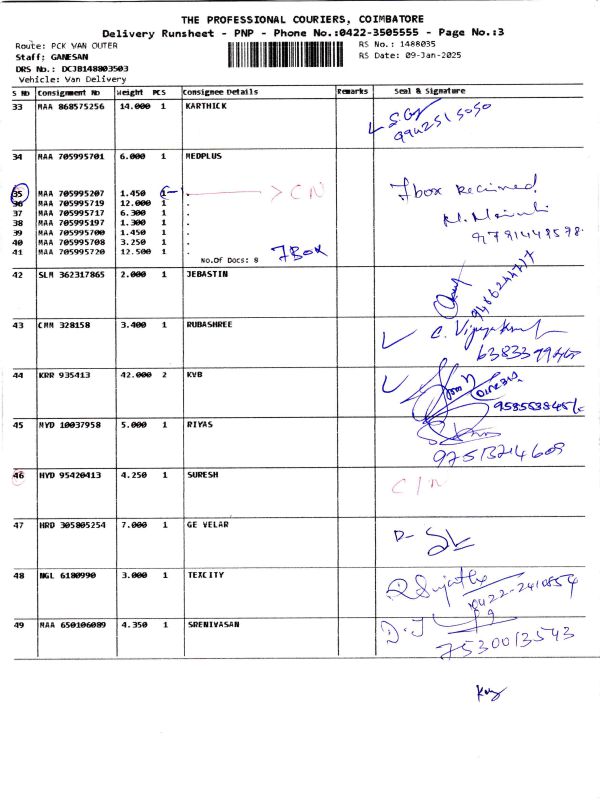 THE PROFESSIONAL COURIERS, COIMBATORE
Delivery Runsheet - PNP - Phone No.:0422-3505555 - Page No.:3
Route: PCK VAN OUTER
RS No.: 1488035
Staff: GANESAN
RS Date: 09-Jan-2025
DRS No.: DCJB148803503
Vehicle: Van Delivery
S No Consignment No Weight PCS Consignee Details Remarks Seal & Signature
33 MAA 868575256 14.000 1 KARTHICK
9942515050
34 MAA 705995701 6.000 1 MEDPLUS
35 MAA 705995207 1.450 1 . > C N
7box Recieved
36 MAA 705995719 12.000 1 .
37 MAA 705995717 6.300 1 .
38 MAA 705995197 1.300 1 .
39 MAA 705995700 1.450 1 .
40 MAA 705995708 3.250 1 .
41 MAA 705995720 12.500 1 .
No.Of Docs: 8 7BOX
42 SLM 362317865 2.000 1 JEBASTIN
43 CMM 328158 3.400 1 RUBASHREE
44 KRR 935413 42.000 2 KVB
45 MYD 10037958 5.000 1 RIYAS
97513214609
46 HYD 95420413 4.250 1 SURESH C/N
47 HRD 305805254 7.000 1 GE VELAR
48 NGL 6180990 3.000 1 TEXCITY
0422-2410854
49 MAA 650106089 4.350 1 SRENIVASAN
D.J
7530013543